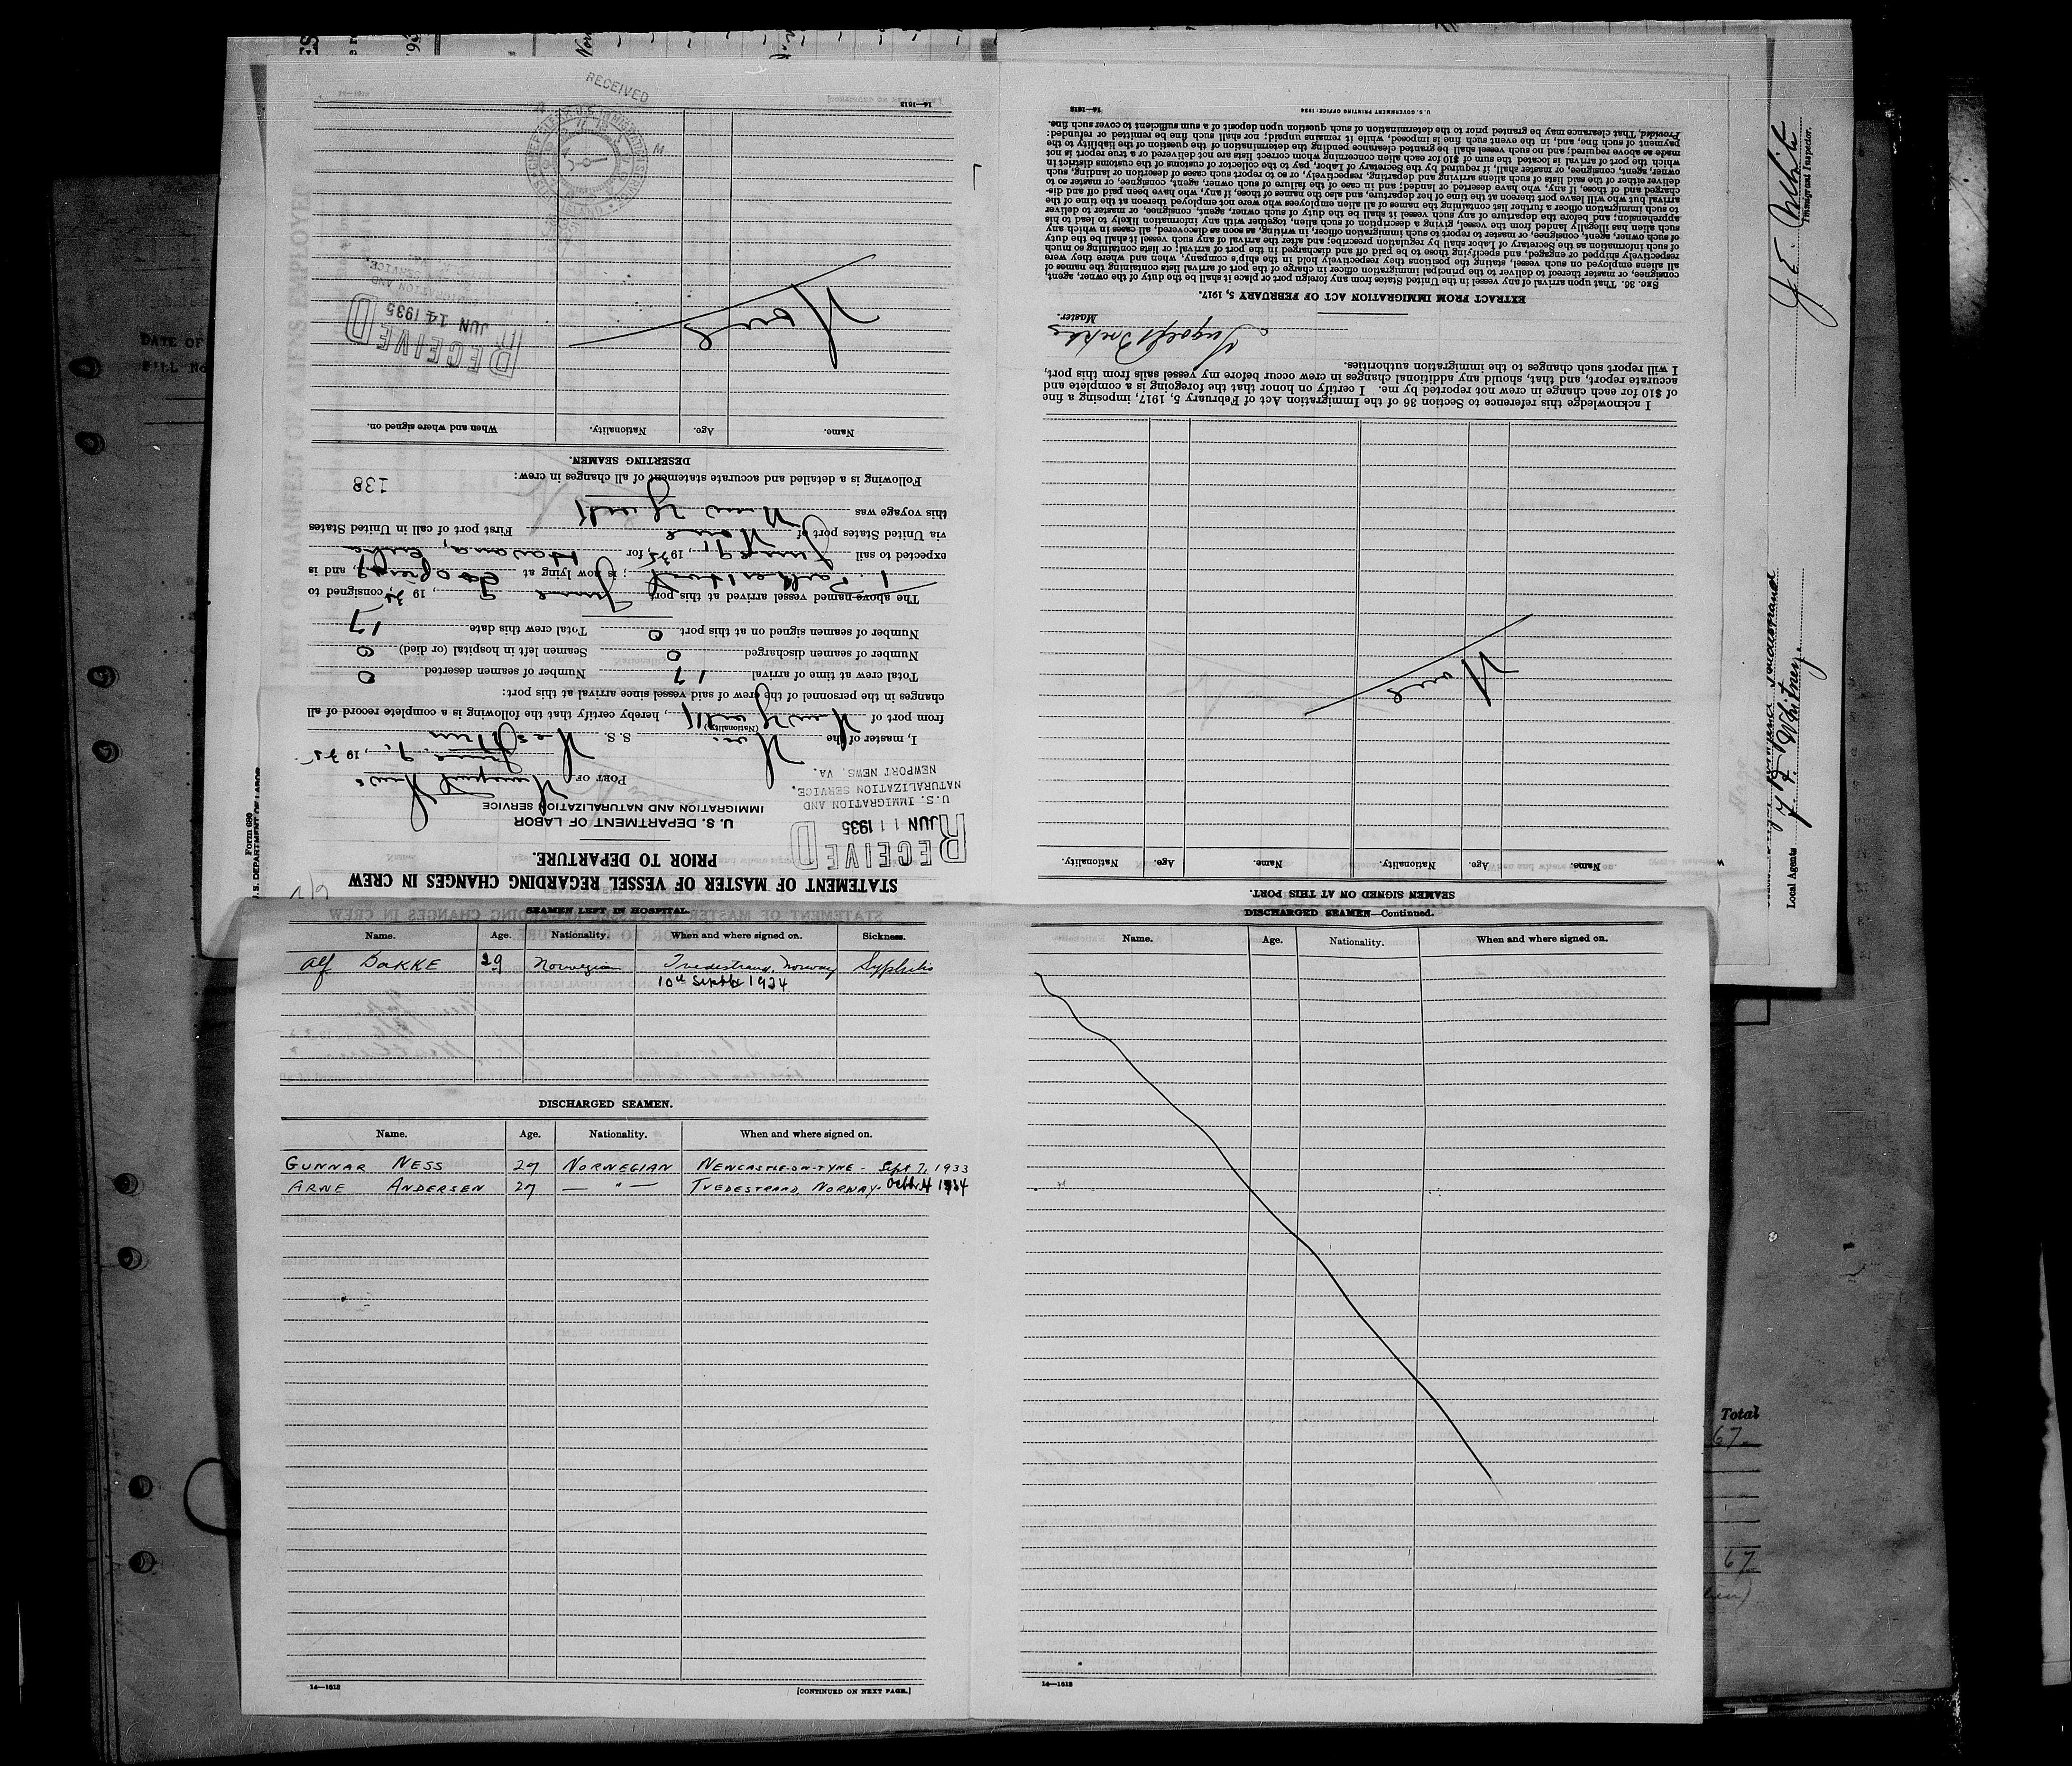 STATEMENT OF MASTER OF VESSEL REGARDING CHANGES IN CREW
PRIOR TO DEPARTURE.
U. S. DEPARTMENT OF LABOR
IMMIGRATION AND NATURALIZATION SERVICE
RECEIVED
JUN 11 1935
U. S. IMMIGRATION AND
NATURALIZATION SERVICE,
NEWPORT NEWS, VA.
PORT OF Newport News
June 9, 1935
I, master of the Nor. S. S.
(Nationality)
from port of New York, hereby certify that the following is a complete record of all
changes in the personnel of the crew of said vessel since arrival at this port:
Total crew at time of arrival 17 Number of seamen deserted 0
Number of seamen discharged 0 Seamen left in hospital (or died) 0
Number of seamen signed on at this port 0 Total crew this date 17
The above-named vessel arrived at this port June 7, 1935, consigned to
; is now lying at , and is
expected to sail June 9, 1935, for Havana, Cuba
via United States port of None First port of call in United States
this voyage was New York
Following is a detailed and accurate statement of all changes in crew:
138
DESERTING SEAMEN.
Name. Age. Nationality. When and where signed on.
None
RECEIVED
JUN 14 1935
RECEIVED
14—1613
SEAMEN SIGNED ON AT THIS PORT.
Name. Age. Nationality. Name. Age. Nationality.
None
I acknowledge this reference to Section 36 of the Immigration Act of February 5, 1917, imposing a fine
of $10 for each change in crew not reported by me. I certify on honor that the foregoing is a complete and
accurate report, and that, should any additional changes in crew occur before my vessel sails from this port,
I will report such changes to the immigration authorities.
Master.
EXTRACT FROM IMMIGRATION ACT OF FEBRUARY 5, 1917.
SEC. 36. That upon arrival of any vessel in the United States from any foreign port or place it shall be the duty of the owner, agent,
consignee, or master thereof to deliver to the principal immigration officer in charge of the port of arrival lists containing the names of
all aliens employed on such vessel, stating the positions they respectively hold in the ship's company, when and where they were
respectively shipped or engaged, and specifying those to be paid off and discharged in the port of arrival; or lists containing so much
of such information as the Secretary of Labor shall by regulation prescribe; and after the arrival of any such vessel it shall be the duty
of such owner, agent, consignee, or master to report to such immigration officer, in writing, as soon as discovered, all cases in which any
such alien has illegally landed from the vessel, giving a description of such alien, together with any information likely to lead to his
apprehension; and before the departure of any such vessel it shall be the duty of such owner, agent, consignee, or master to deliver
to such immigration officer a further list containing the names of all alien employees who were not employed thereon at the time of the
arrival but who will leave port thereon at the time of her departure, and also the names of those, if any, who have been paid off and dis-
charged and of those, if any, who have deserted or landed; and in case of the failure of such owner, agent, consignee, or master so to
deliver either of the said lists of such aliens arriving and departing, respectively, or so to report such cases of desertion or landing, such
owner, agent, consignee, or master shall, if required by the Secretary of Labor, pay to the collector of customs of the customs district in
which the port of arrival is located the sum of $10 for each alien concerning whom correct lists are not delivered or a true report is not
made as above required; and no such vessel shall be granted clearance pending the determination of the question of the liability to the
payment of such fine, and, in the event such fine is imposed, while it remains unpaid; nor shall such fine be remitted or refunded:
Provided, That clearance may be granted prior to the determination of such question upon deposit of a sum sufficient to cover such fine.
U. S. GOVERNMENT PRINTING OFFICE: 1934
14—1613
Immigrant Inspector.
Local Agents
Form 680
U.S. DEPARTMENT OF LABOR
DATE OF
SEAMEN LEFT IN HOSPITAL
Name. Age. Nationality. When and where signed on. Sickness.
Alf BAKKE 29 Norwegian Tvedestrand, Norway Syphilis
10th Septbr 1934
DISCHARGED SEAMEN.
Name. Age. Nationality. When and where signed on.
GUNNAR NESS 27 NORWEGIAN NEWCASTLE-ON-TYNE - Sept 7, 1933
ARNE ANDERSEN 27 — " — TVEDESTRAND, NORWAY. Octbr 4 1934
14—1613
[CONTINUED ON NEXT PAGE.]
DISCHARGED SEAMEN—Continued.
Name. Age. Nationality. When and where signed on.
14—1613
Total
67
67